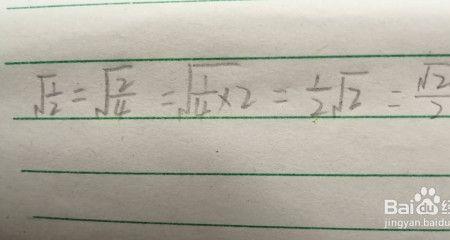 √1/2 = √2/4 = √1/4×2 = 1/2√2 = √2/2
Baidu经
jingyan.baidu